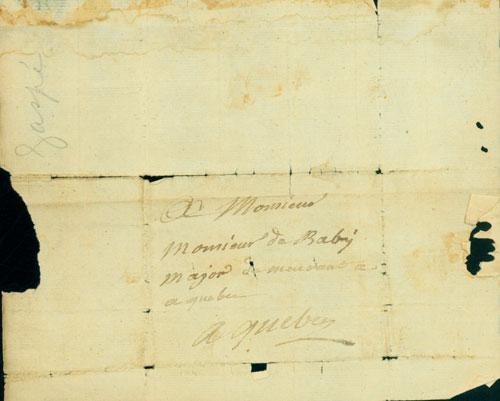 Gaspé
A Monsieur
Monsieur de Baby
Major de meurant a
a quebec
A quebec